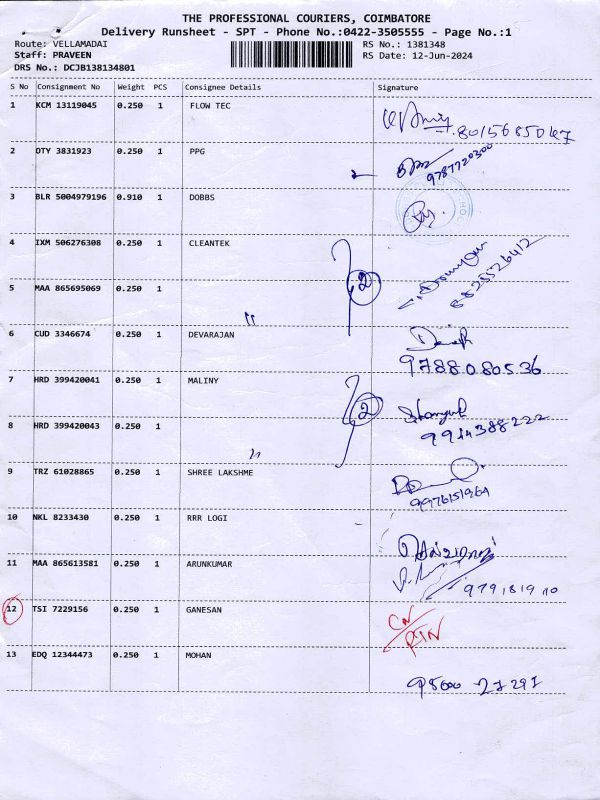 THE PROFESSIONAL COURIERS, COIMBATORE
Delivery Runsheet - SPT - Phone No.:0422-3505555 - Page No.:1
Route: VELLAMADAI
RS No.: 1381348
Staff: PRAVEEN
RS Date: 12-Jun-2024
DRS No.: DCJB138134801
S No Consignment No Weight PCS Consignee Details Signature
1 KCM 13119045 0.250 1 FLOW TEC
2 DTY 3831923 0.250 1 PPG
9787720300
3 BLR 5004979196 0.910 1 DOBBS
4 IXM 506276308 0.250 1 CLEANTEK
2
8825526412
5 MAA 865695069 0.250 1 "
6 CUD 3346674 0.250 1 DEVARAJAN
9788080536
7 HRD 399420041 0.250 1 MALINY
2
8 HRD 399420043 0.250 1 "
9944388222
9 TRZ 61028865 0.250 1 SHREE LAKSHME
10 NKL 8233430 0.250 1 RRR LOGI
11 MAA 865613581 0.250 1 ARUNKUMAR
12 TSI 7229156 0.250 1 GANESAN
CN/RTN
13 EDQ 12344473 0.250 1 MOHAN
95000 27297